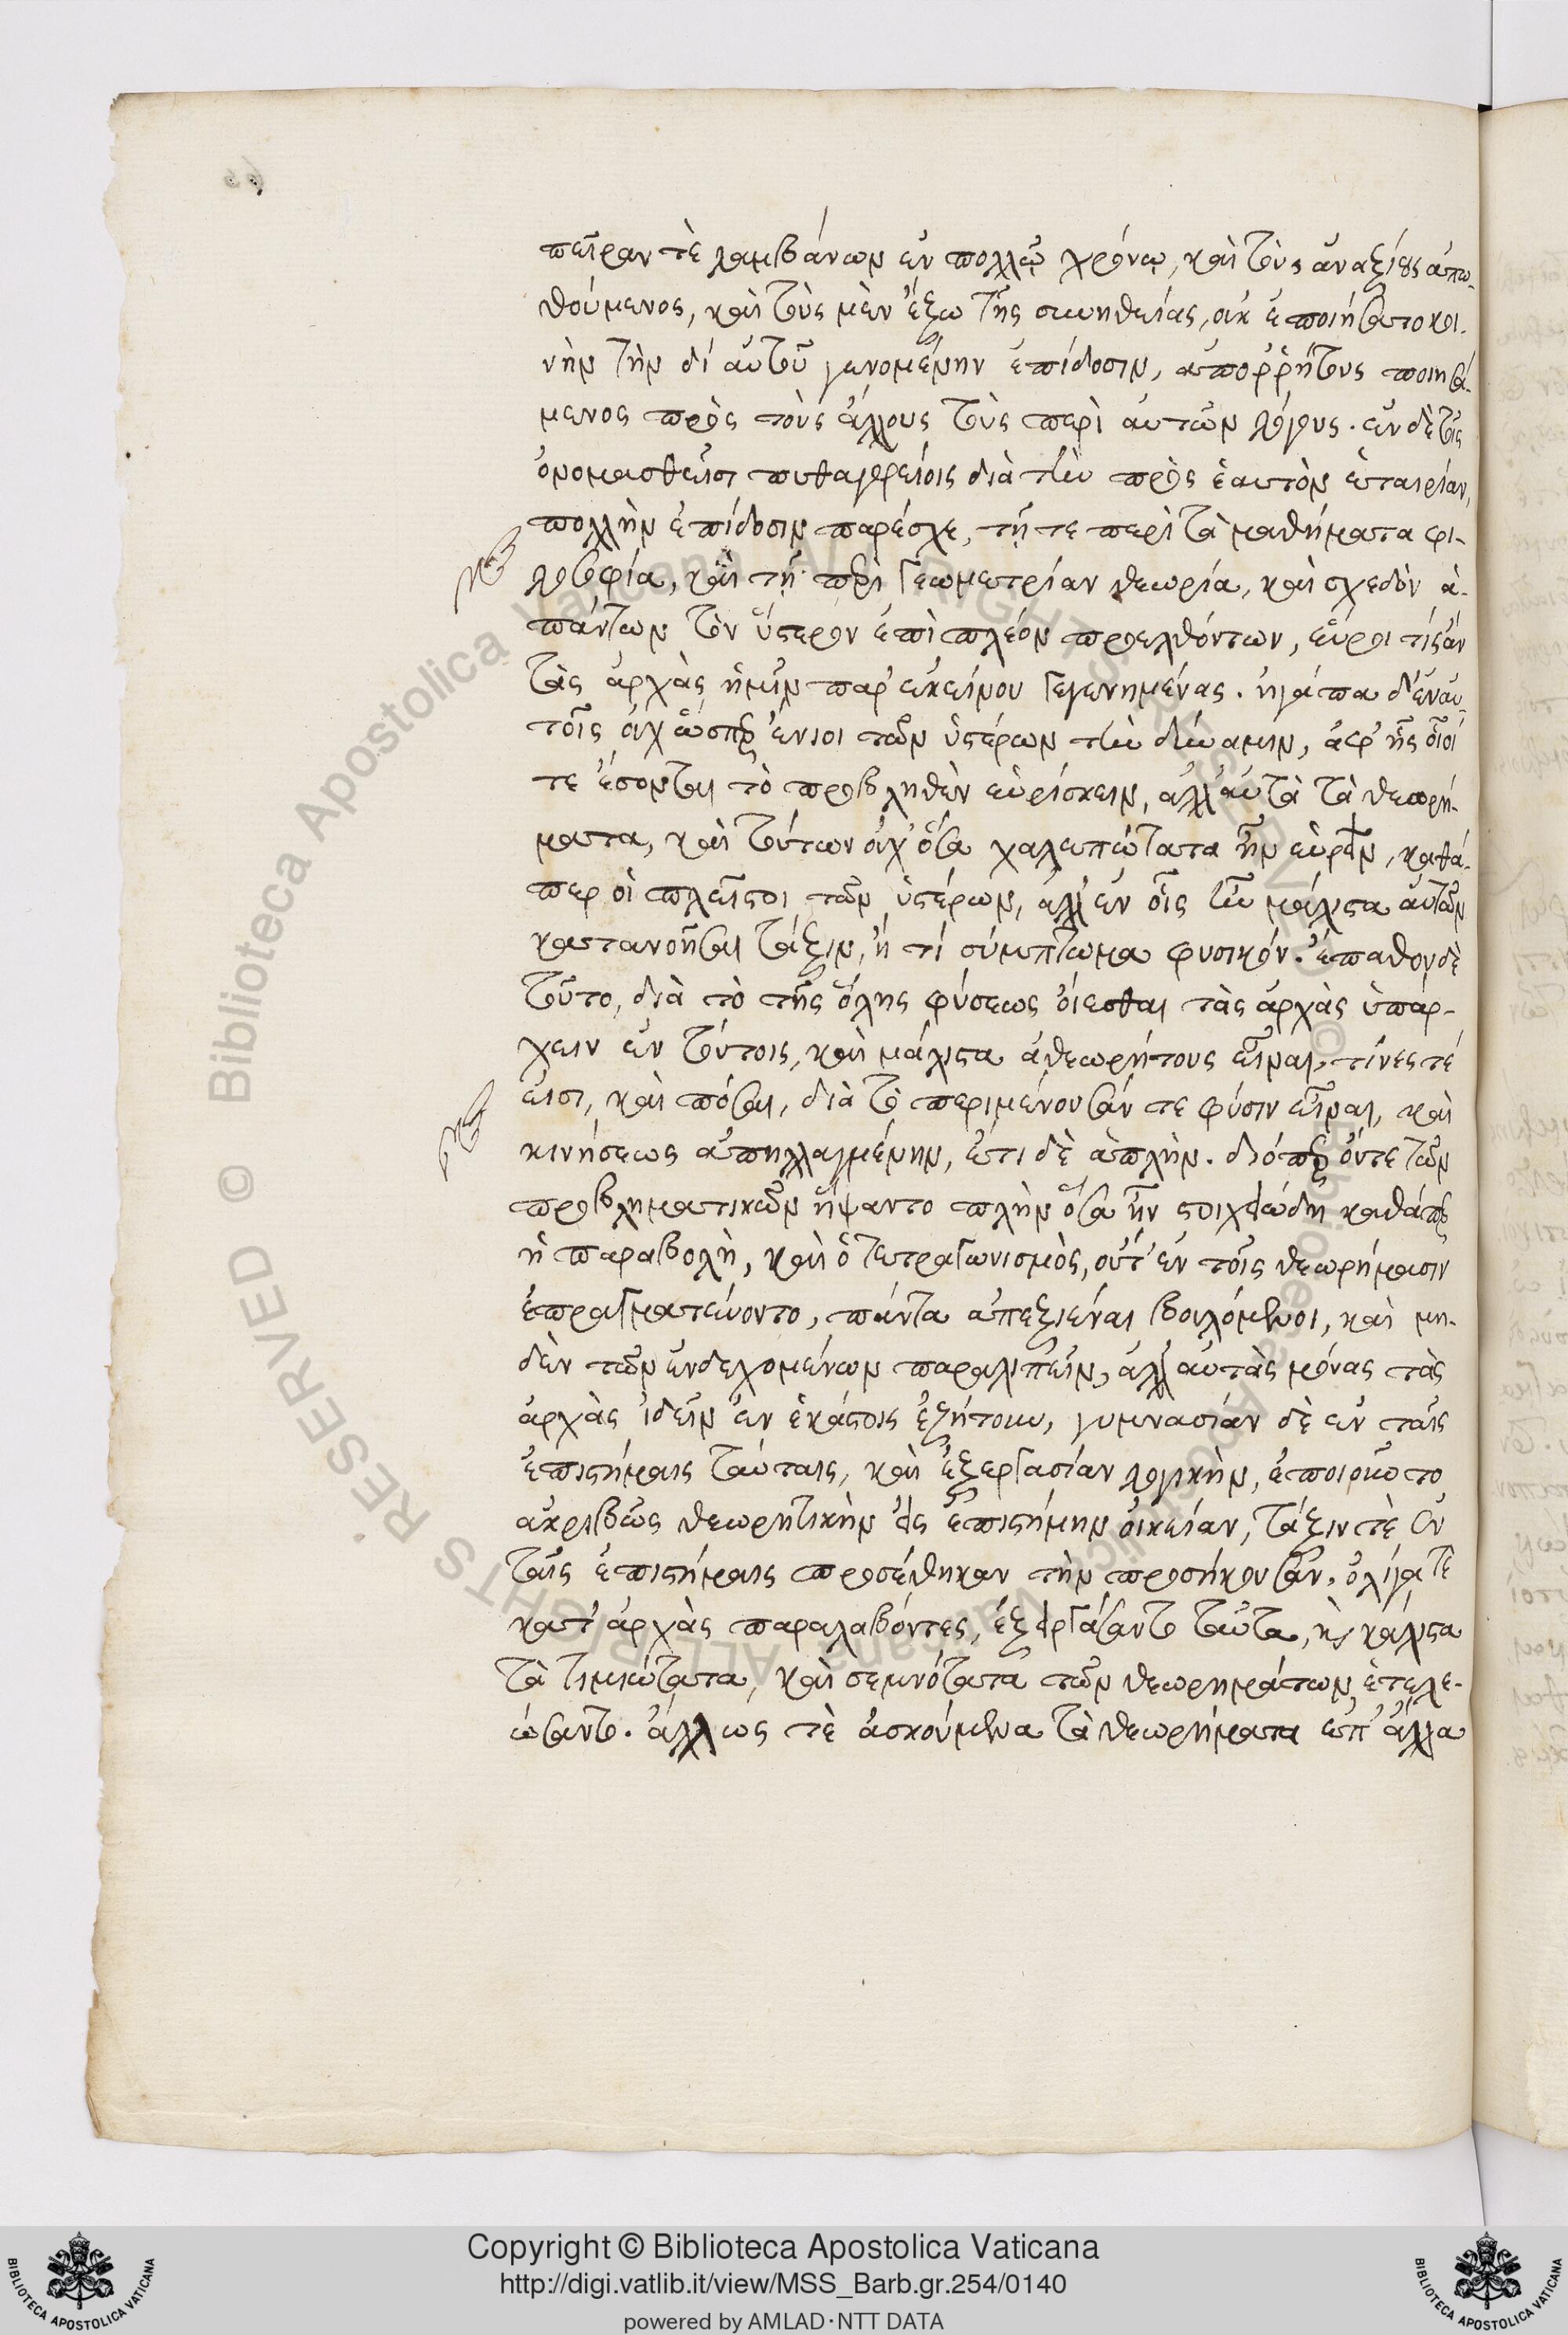 πεῖραν τὲ λαμβάνων ἐν πολλῷ χρόνῳ, καὶ τοὺς ἀναξίους ἀπω-
θούμενος, καὶ τοὺς μὲν ἔξω τῆς συνηθείας, οὐκ ἐποιήσατο κοι-
νὴν τὴν δι' αὐτοῦ γενομένην ἐπίδοσιν, ἀπορρήτους ποιησά-
μενος πρὸς τοὺς ἄλλους τοὺς περὶ αὐτῶν λόγους. ἐν δὲ τοῖς
ὀνομασθεῖσι πυθαγορείοις διὰ τὴν πρὸς ἑαυτὸν ἑταιρίαν,
πολλὴν ἐπίδοσιν παρέσχε, τῇ τε περὶ τὰ μαθήματα φι-
λοσοφία, καὶ τῇ περὶ γεωμετρίαν θεωρία, καὶ σχεδὸν ἁ-
πάντων τὸν ὕστερον ἐπὶ πλέον προελθόντων, εὕροι τίς ἂν
τὰς ἀρχὰς ἡμῖν παρ' ἐκείνου γεγενημένας. ἠγάπα δ' ἐν αὐ-
τοῖς οὐχ ὥσπερ ἔνιοι τῶν ὑστέρων τὴν δύναμιν, ἀφ' ἧς οἷοί
τε ἔσονται τὸ προβληθὲν εὑρίσκειν, ἀλλ' αὐτὰ τὰ θεωρή-
ματα, καὶ τούτων οὐχ' ὅσα χαλεπώτατα ἦν εὑρεῖν, καθά-
περ οἱ πλεῖστοι τῶν ὑστέρων, ἀλλ' ἐν οἷς ἦν μάλιστα αὐτῶν
κατανοῆσαι τάξιν, ἤ τι σύμπτωμα φυσικόν. ἔπαθον δὲ
τοῦτο, διὰ τὸ τῆς ὅλης φύσεως οἴεσθαι τὰς ἀρχὰς ὑπάρ-
χειν ἐν τούτοις, καὶ μάλιστα ἀθεωρήτους εἶναι, τίνες τέ
εἰσι, καὶ πόσαι, διὰ τὸ περιμένουσάν τε φύσιν εἶναι, καὶ
κινήσεως ἀπηλλαγμένην, ἔτι δὲ ἁπλὴν. διόπερ οὔτε τῶν
προβληματικῶν ἥψαντο πλὴν ὅσα ἦν στοιχειώδη καθάπερ
ἡ παραβολὴ, καὶ ὁ τετραγωνισμὸς, οὔτ' ἐν τοῖς θεωρήμασιν
ἐπραγματεύοντο, πάντα ἀπεξιέναι βουλόμενοι, καὶ μη-
δὲν τῶν ἐνδεχομένων παραλιπεῖν, ἀλλ' αὐτὰς μόνας τὰς
ἀρχὰς ἰδεῖν ἐν ἑκάστοις ἐζήτουν, γυμνασίαν δὲ ἐν ταῖς
ἐπιστήμαις ταύταις, καὶ ἐξεργασίαν λογικὴν, ἐποιοῦντο
ἀκριβῶς θεωρητικὴν εἰς ἐπιστήμην οἰκείαν, τάξιν τὲ ἐν
ταῖς ἐπιστήμαις προσέθηκαν τὴν προσήκουσαν, ὀλίγα τὲ
κατ' ἀρχὰς παραλαβόντες, ἐξειργάσαντο ταῦτα, καὶ κάλιστα
τὰ τιμιώτατα, καὶ σεμνότατα τῶν θεωρημάτων ἐτελε-
ώσαντο. ἄλλως τὲ ἀσκούμενα τὰ θεωρήματα ἐπ' ἄλλα
Copyright © Biblioteca Apostolica Vaticana
http://digi.vatlib.it/view/MSS_Barb.gr.254/0140
powered by AMLAD·NTT DATA